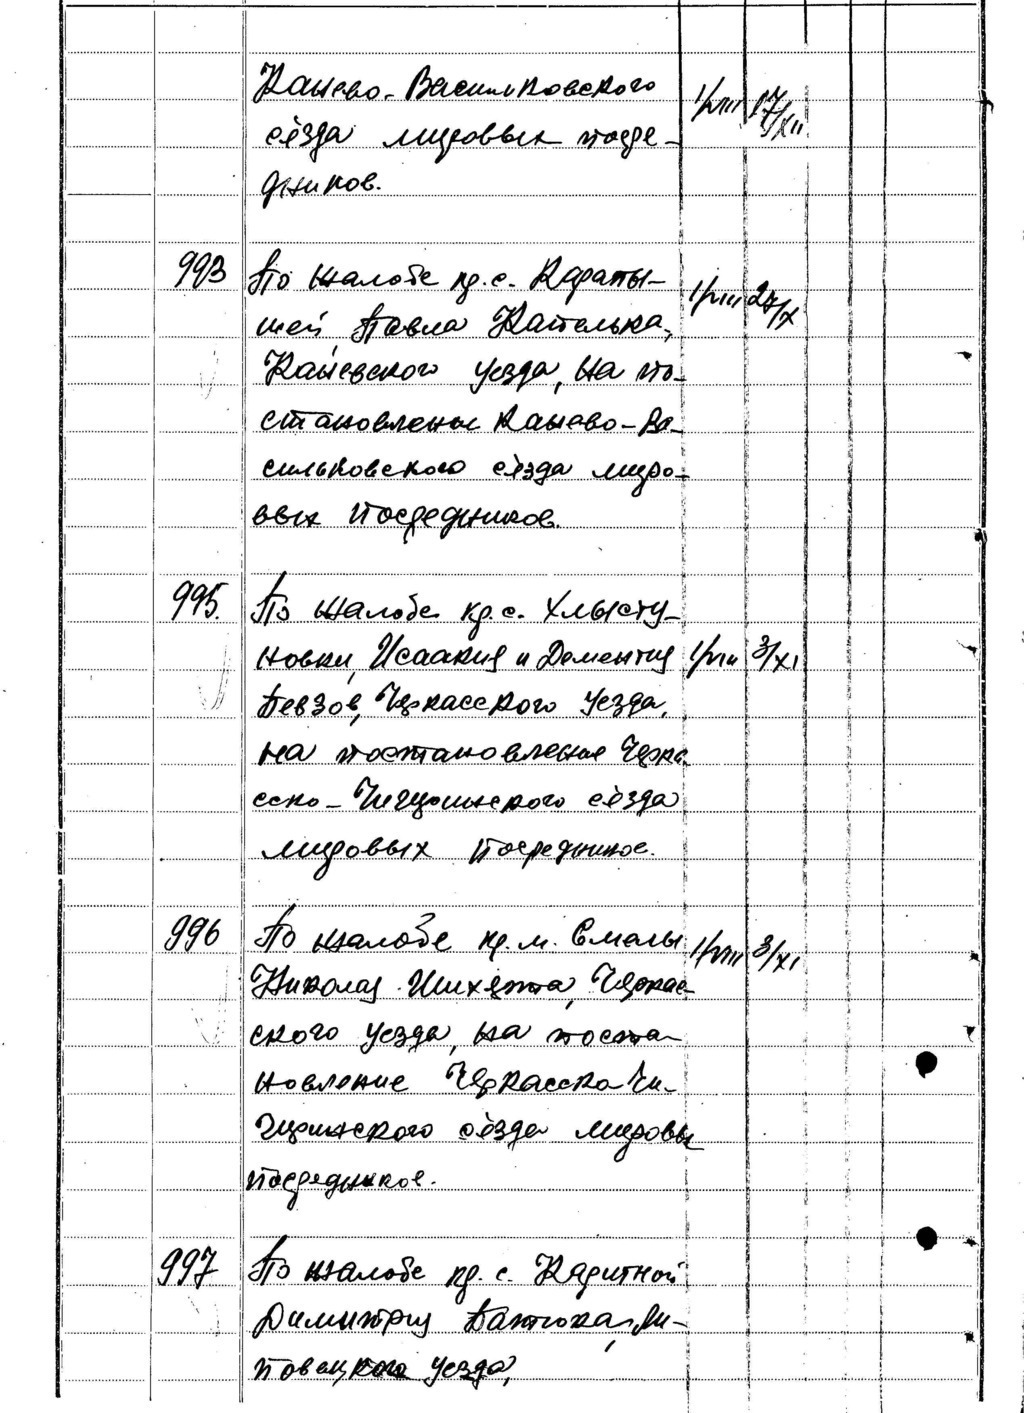 Канево-Васильковского 1/VIII 17/XII
съезда мировых посре-
дников.
993 По жалобе кр. с. Карапы- 1/VIII 27/X
шей, Павла Кателька,
Каневского уезда, на по-
становление Канево-Ва-
сильковского съезда миро-
вых посредников.
995. По жалобе кр. с. Хлысту-
новки, Исаакия и Дементия 1/VIII 3/XI
Певзов, Черкасского уезда,
на постановление Черка-
сско-Чигиринского съезда
мировых посредников.
996 По жалобе кр. м. Смелы 1/VIII 3/XI
Николая Черкас-
ского уезда, на поста-
новление Черкасско Чи-
гиринского съезда мировых
посредников.
997 По жалобе кр. с.
Димитрия Ли-
повецкого уезда,